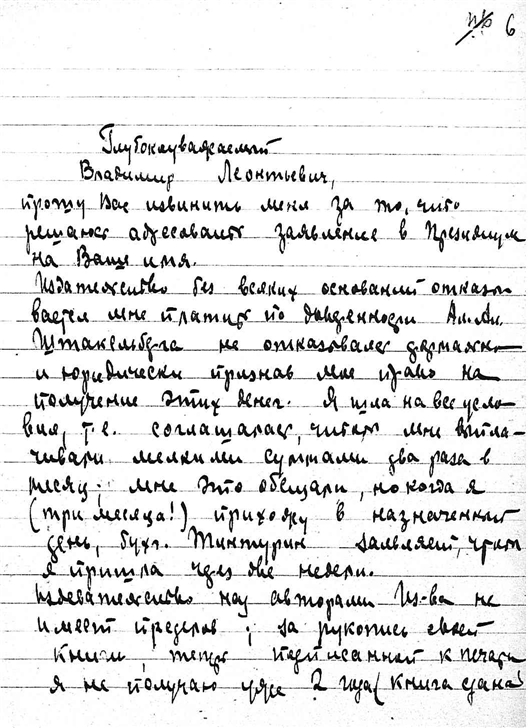 6
Глубокоуважаемый
Владимир Леонтьевич,
прошу Вас извинить меня за то, что
решаюсь адресовать заявление в Президиум
на Ваше имя.
Издательство без всяких оснований отказы
вается мне платить по доверенности Ал. Ал.
Штакельберга не отказываясь
и юридически признав мое право на
получение этих денег. Я шла на все усло
вия, т.е. соглашалась, чтобы мне выпла
чивали мелкими суммами два раза в
месяц; мне это обещали, но когда я
(три месяца!) прихожу в назначенный
день, бухг. Тинтурин заявляет, чтоб
я пришла через две недели.
Издевательство над авторами Из-ва не
имеет пределов; за рукопись своей
книги, теперь подписанной к печати
я не получаю уже 2 года (книга сдана